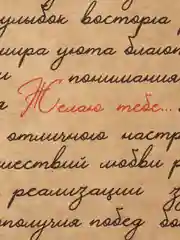 улыбок восторга
мира уюта благо
и понимания
я Желаю тебе...
отличного настр
шествий любви р
реализации з
ополучия побед бо